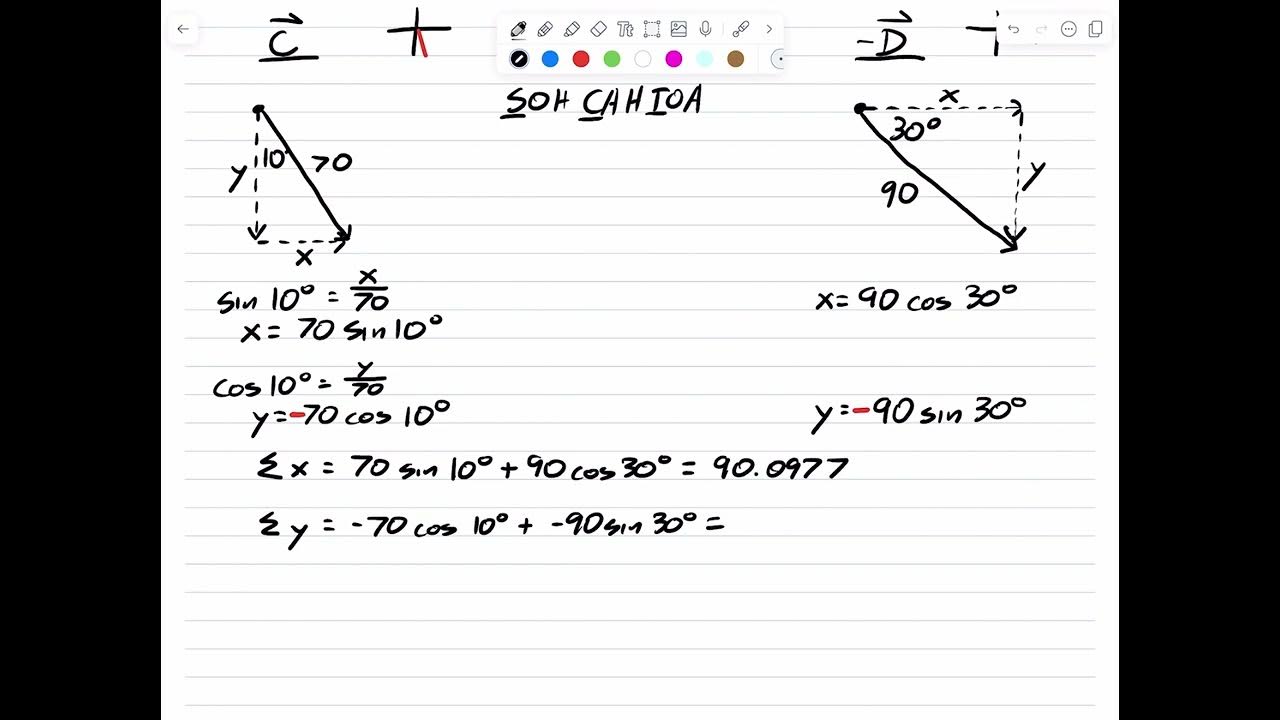 C⃗
-D⃗
Tt
SOH CAH TOA
10°
70
y
x
x
30°
90
y
sin 10° = x/70
x = 70 sin 10°
cos 10° = y/70
y = -70 cos 10°
x = 90 cos 30°
y = -90 sin 30°
Σ x = 70 sin 10° + 90 cos 30° = 90.0977
Σ y = -70 cos 10° + -90 sin 30° =